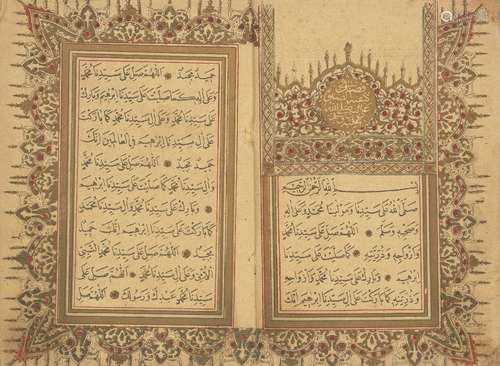 بسم الله الرحمن الرحيم
صلى الله على سيدنا ومولانا محمد وعلى اله
وصحبه وسلم اللهم صل على سيدنا محمد
وازواجه وذريته كما صليت على سيدنا
ابرهيم وبارك على سيدنا محمد وازواجه
وذريته كما باركت على ال سيدنا ابرهيم انك
حميد مجيد اللهم صل على سيدنا محمد
وعلى اله كما صليت على سيدنا ابرهيم وبارك
على سيدنا محمد وعلى ال سيدنا محمد كما باركت
على ال سيدنا ابرهيم في العالمين انك
حميد مجيد اللهم صل على سيدنا محمد
وال سيدنا محمد كما صليت على سيدنا ابرهيم
وبارك على سيدنا محمد وال سيدنا محمد
كما باركت على سيدنا ابرهيم انك حميد
مجيد اللهم صل على سيدنا محمد النبي
الامي وعلى ال سيدنا محمد اللهم صل على
سيدنا محمد عبدك ورسولك اللهم صل